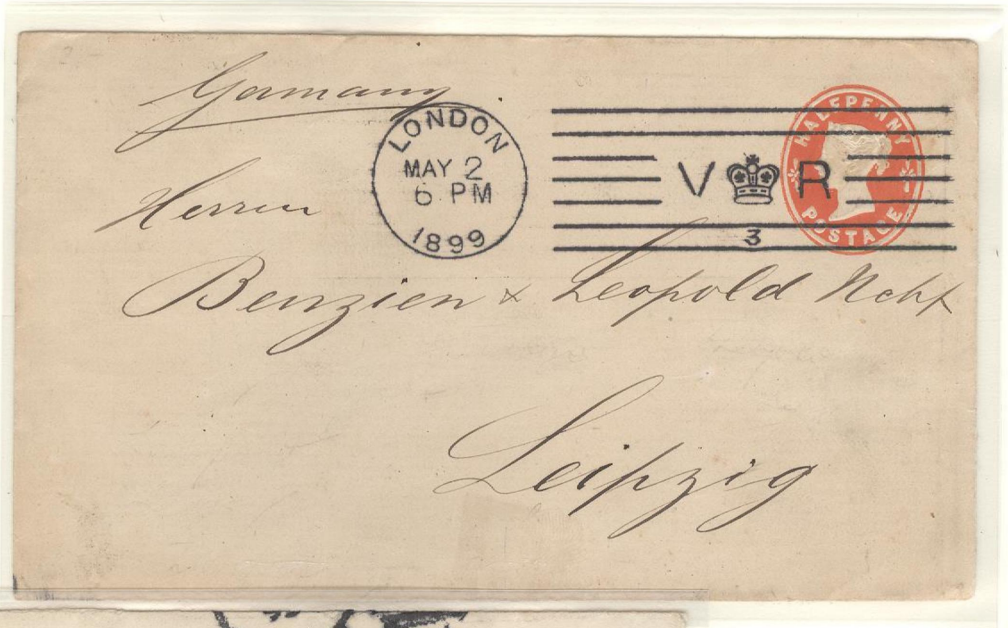 Germany
LONDON
MAY 2
6 PM
1899
V R
3
HALFPENNY
POSTAGE
Herren
Benzien & Leopold Nchf
Leipzig